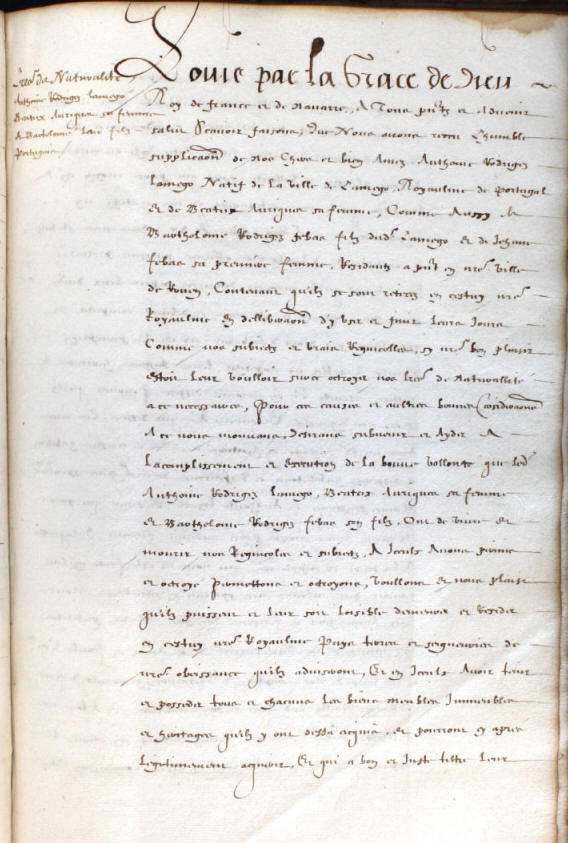 Lrēs de Naturalité
Anthoine Rodrigz Lamego
Beatrix Auriques sa femme
& Bartolome leur filz
Portugais
Louis par la Grace de Dieu
Roy de france et de Navarre, A Tous pñtz et Advenir
salut Scavoir faisons, Que Nous avons receu L'humble
supplicaõn de nos Chers et bien Amez Anthoine Rodrigz
Lamego Natif de la Ville de Lamego, Royaulme de portugal
et de Beatrix Auriques sa femme, Comme Aussy de
Bartholome Rodrigz febos filz dudt Lamego et de Jehanne
febos sa premiere femme, Residants a pñt en nre ville
de Rouen, Contenant qu'ilz se sont retirez en cestuy nre
Royaulme En delliberaõn d'y user et finir Leurs Jours
Comme nos subiectz et vrais Regnicolles, sy nre bon plaisir
estoit Leur voulloir surce octroyer nos lres de Naturallité
a ce necessaires, Pour ces causes et aultres bonnes Considéraõns
A ce nous mouvans, desirans subvenir et Ayder A
L'acomplissement et execution de la bonne vollonté que lesd
Anthoine Rodrigz Lamego, Beatrix Auriques sa femme
et Bartholome Rodrigz febos son filz, Ont de vivre et
mourir nos Regnicoles et subiectz, A Iceulx Avons permis
et octroyé permettons et octroyons, Voullons et nous plaist
qu'ilz puissent et leur soit loisible demeurer et resider
en cestuy nre Royaulme Pays terres et seigneuries de
nre obeissance qu'ilz adviseront, Et en Iceulx Avoir tenir
et posseder tous et chacuns les biens meubles Immeubles
et heritages qu'ilz y ont desia acquis, et pourront cy apres
Legitimement acquerir, Et qui a bon et Juste tiltre Leur